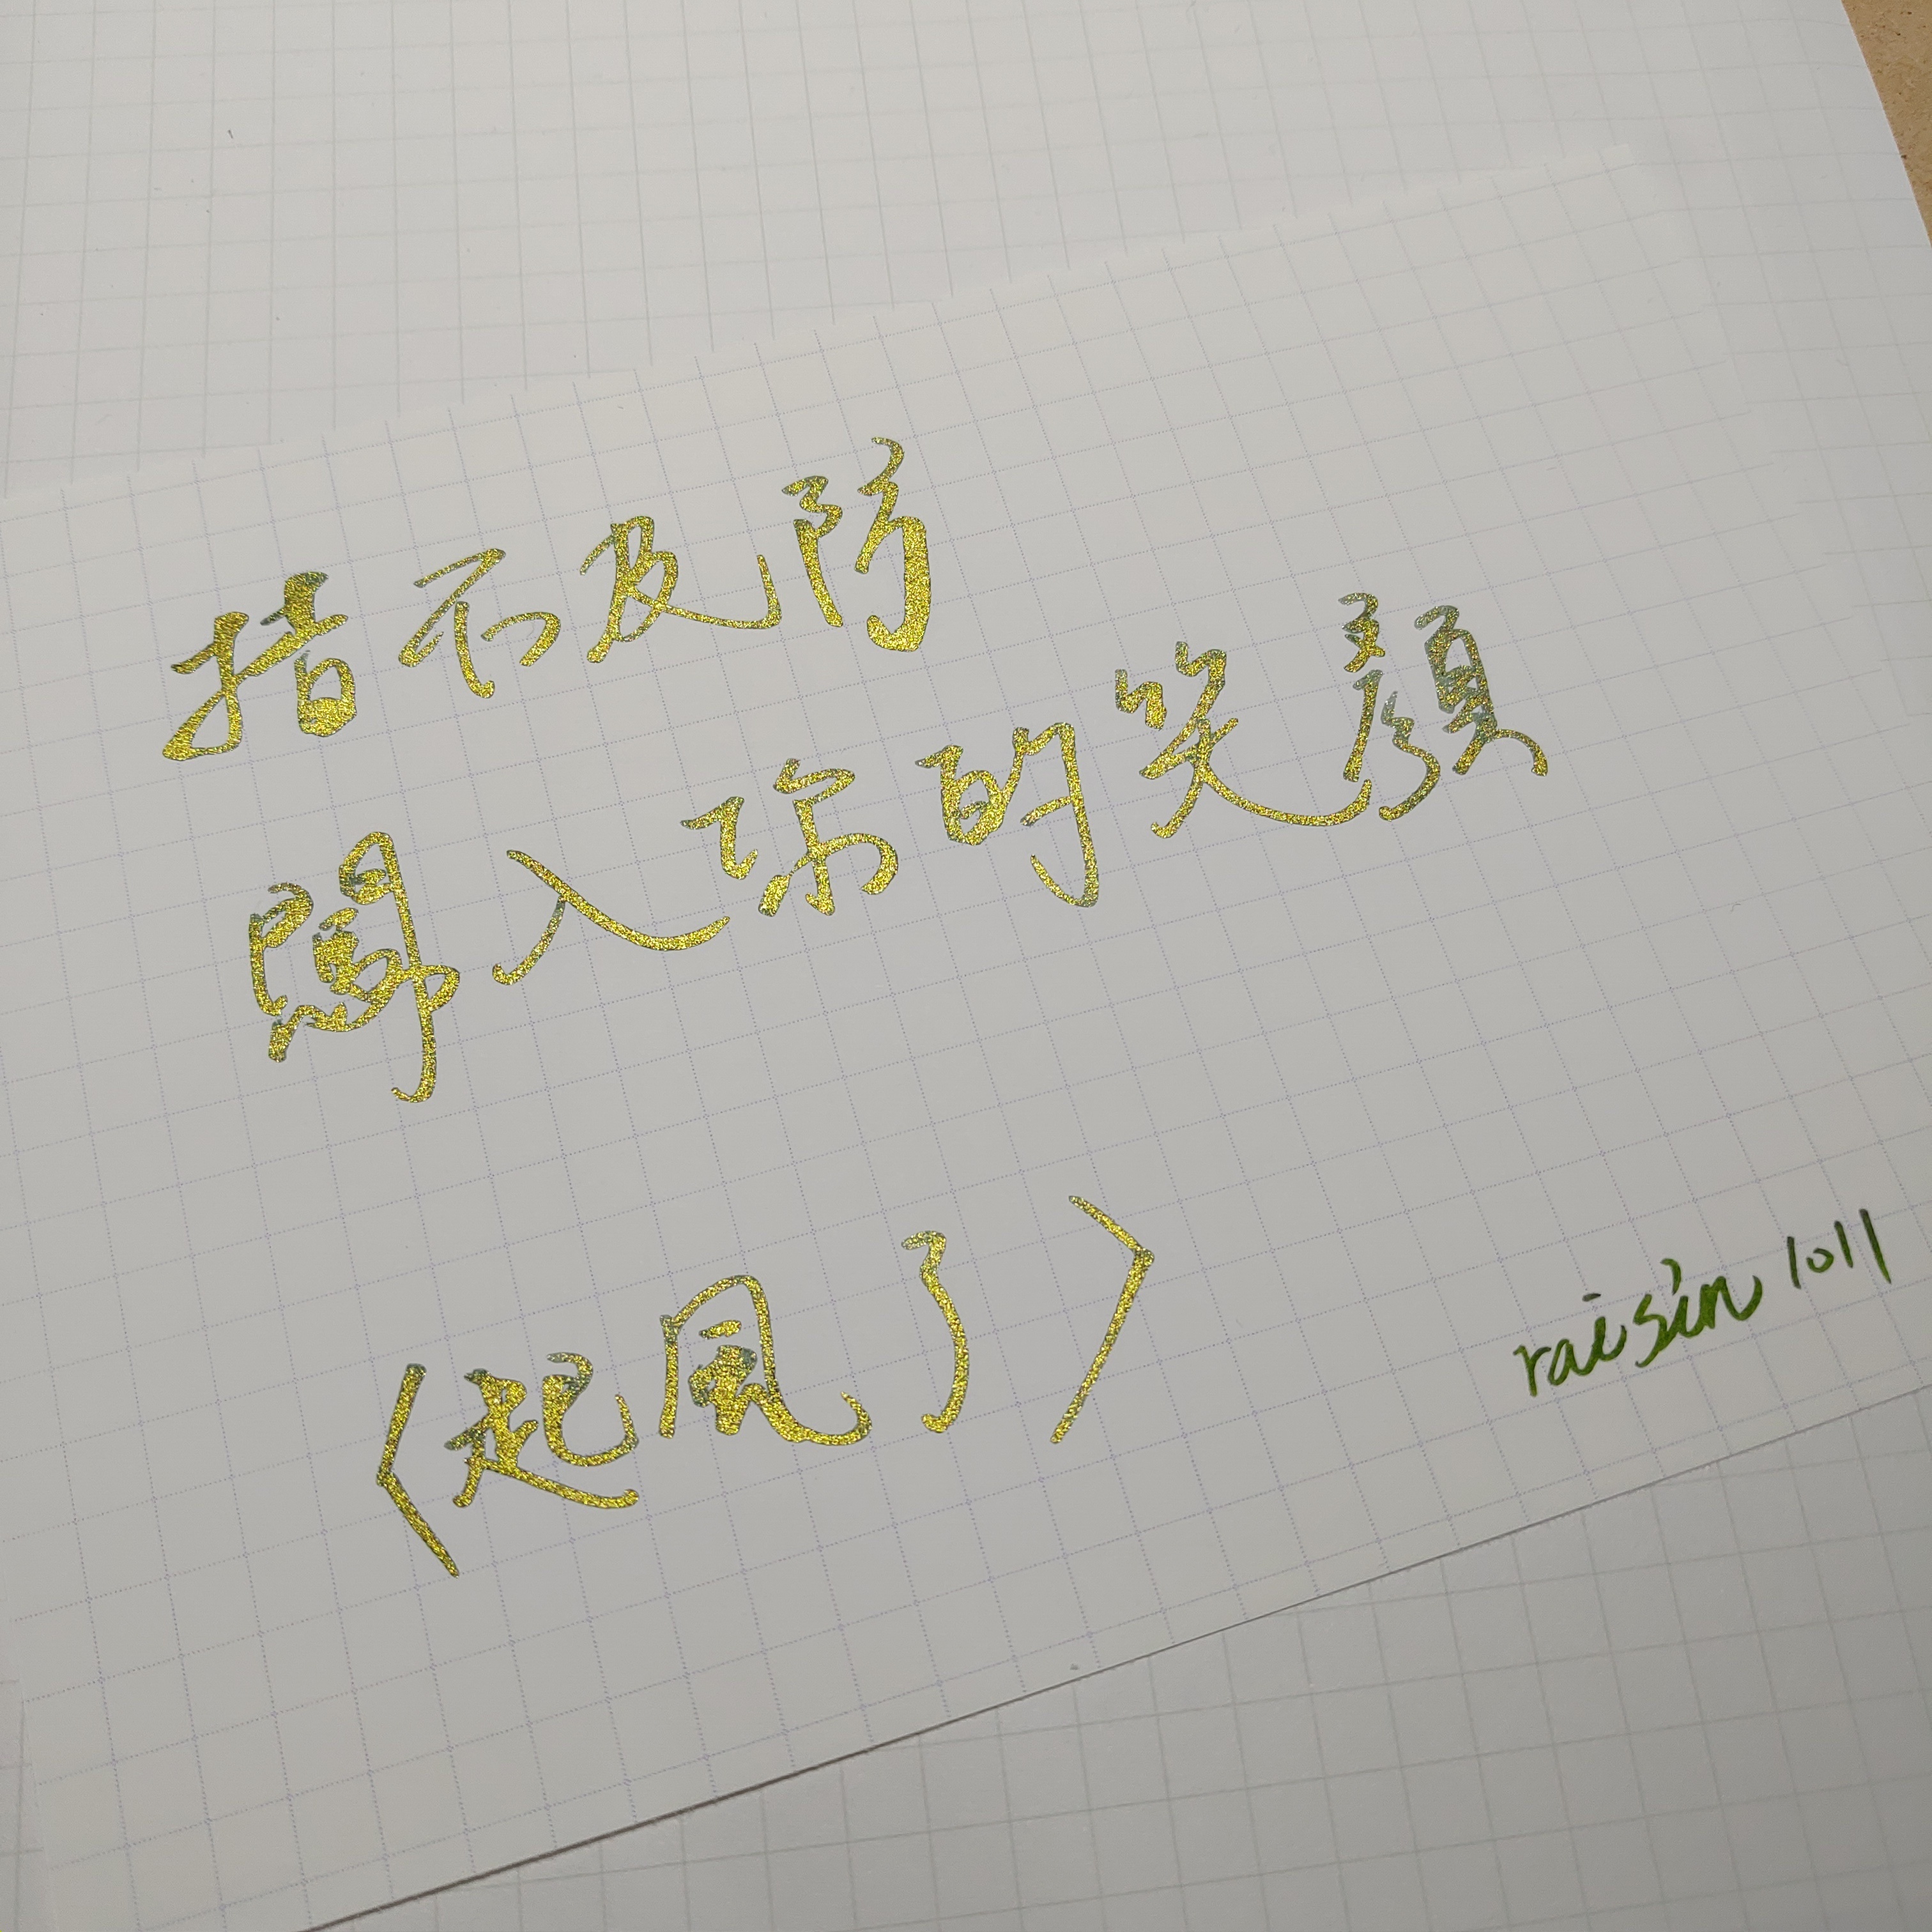 措不及防
闖入你的笑顏
〈起風了〉
raisin 1011